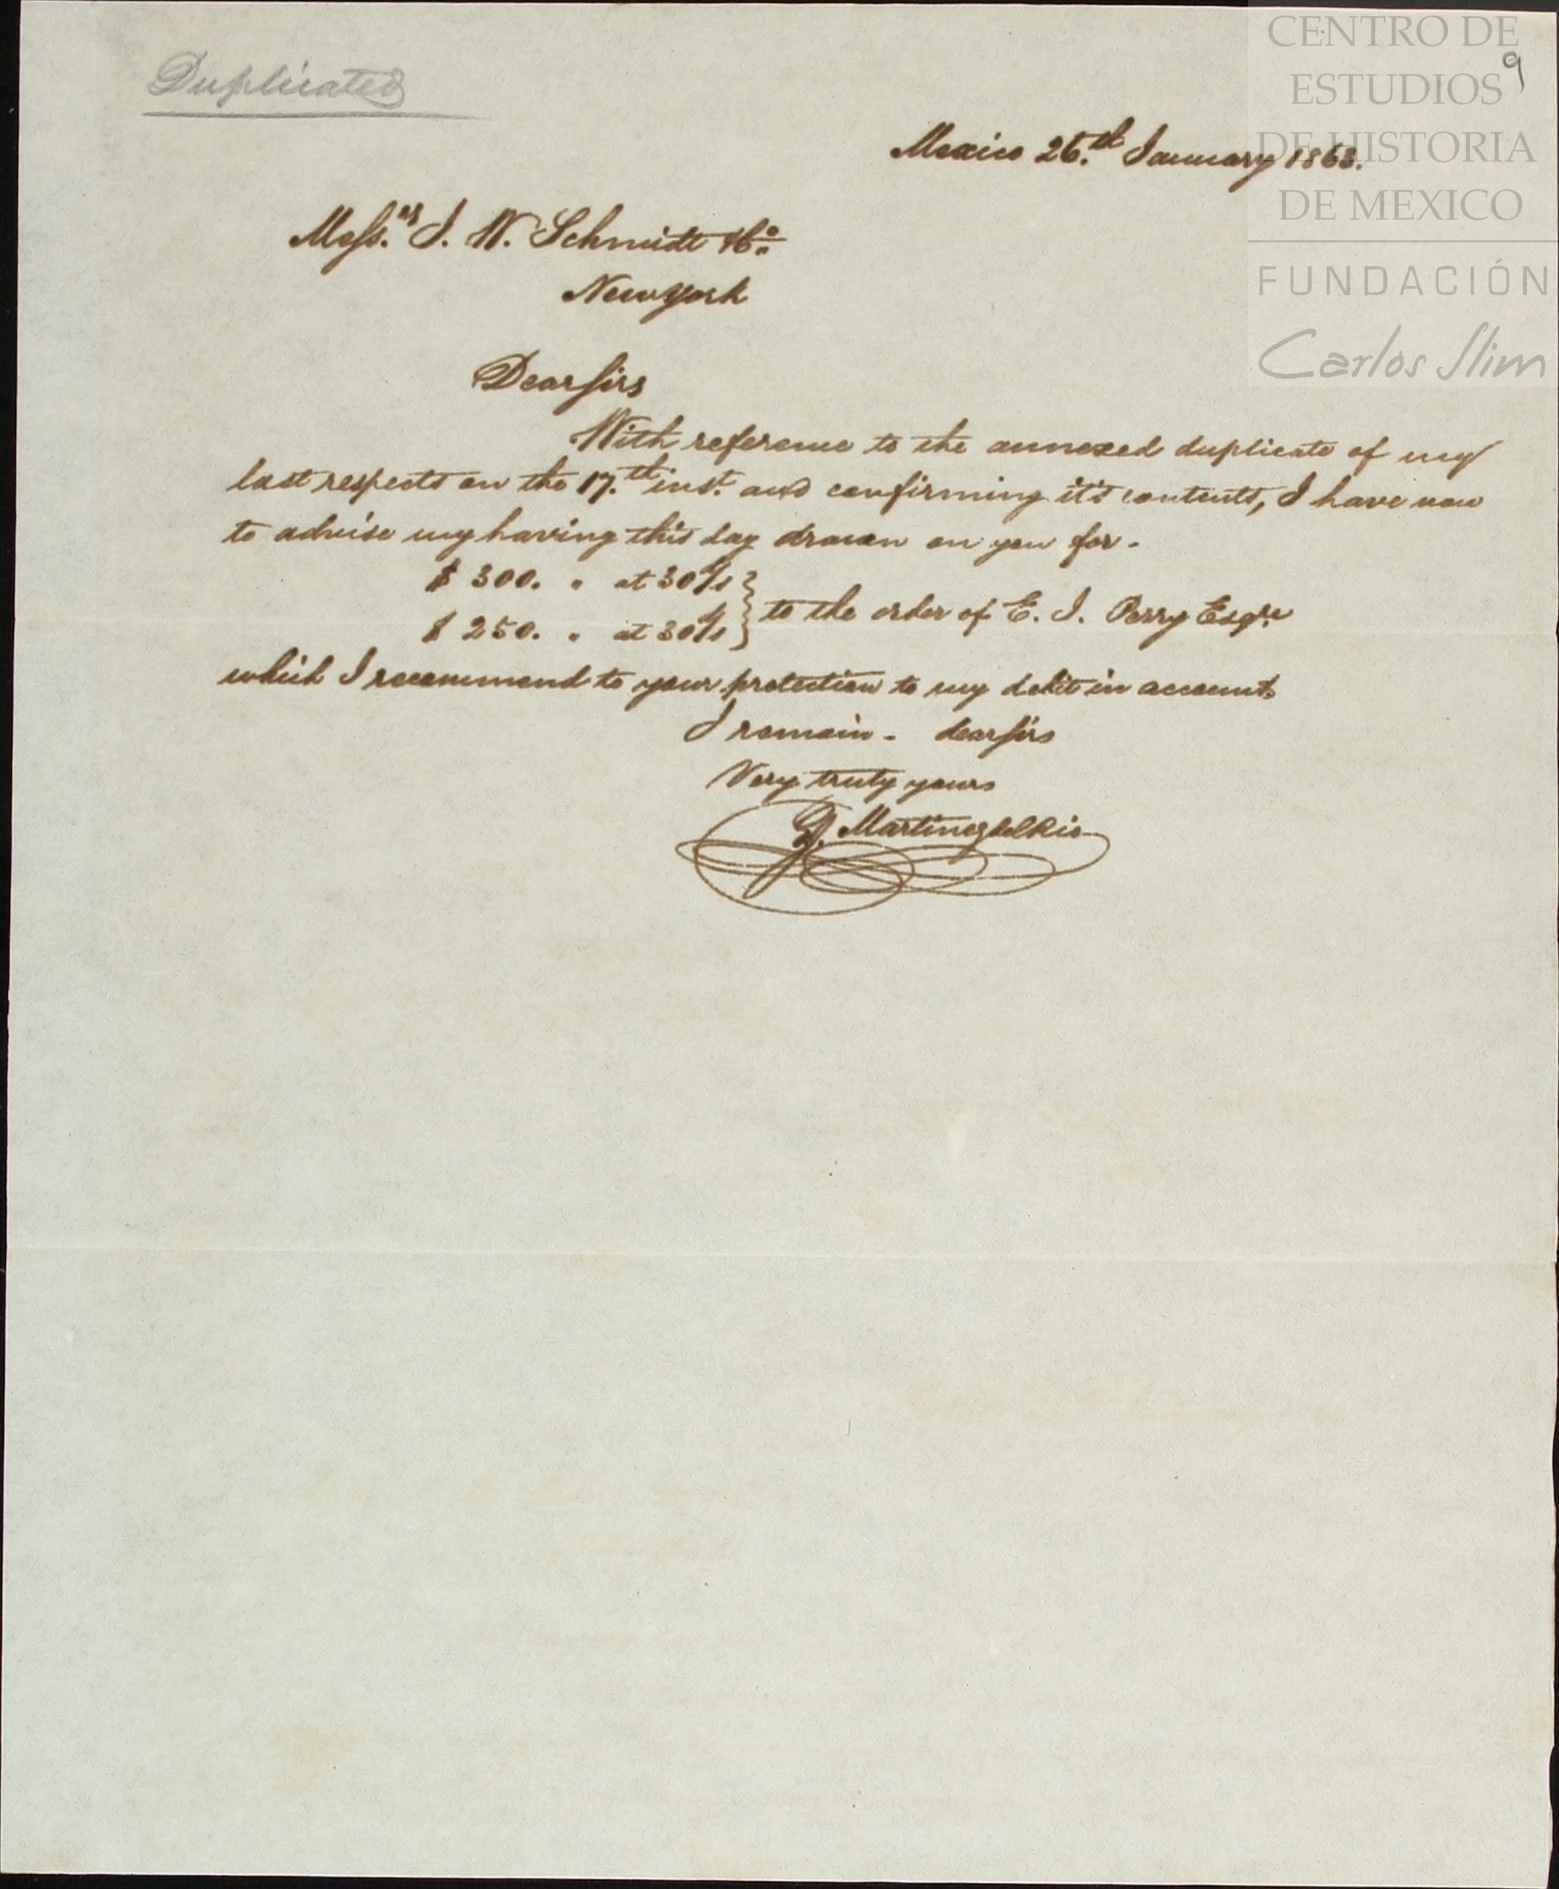 Duplicated
9
Mexico 26.th January 1868.
Mess.rs J. W. Schmidt &Co.
New york
Dear sirs
With reference to the annexed duplicate of my
last respects on the 17.th inst. and confirming it's contents, I have now
to advise my having this day drawn on you for.
$ 300. " at 30 d/s
$ 250. " at 30 d/s } to the order of E. J. Perry Esqre
which I recommend to your protection to my debit in account.
I remain - dear sirs
Very truly yours
Martinez del Rio
CENTRO DE
ESTUDIOS
DE HISTORIA
DE MEXICO
FUNDACIÓN
Carlos Slim